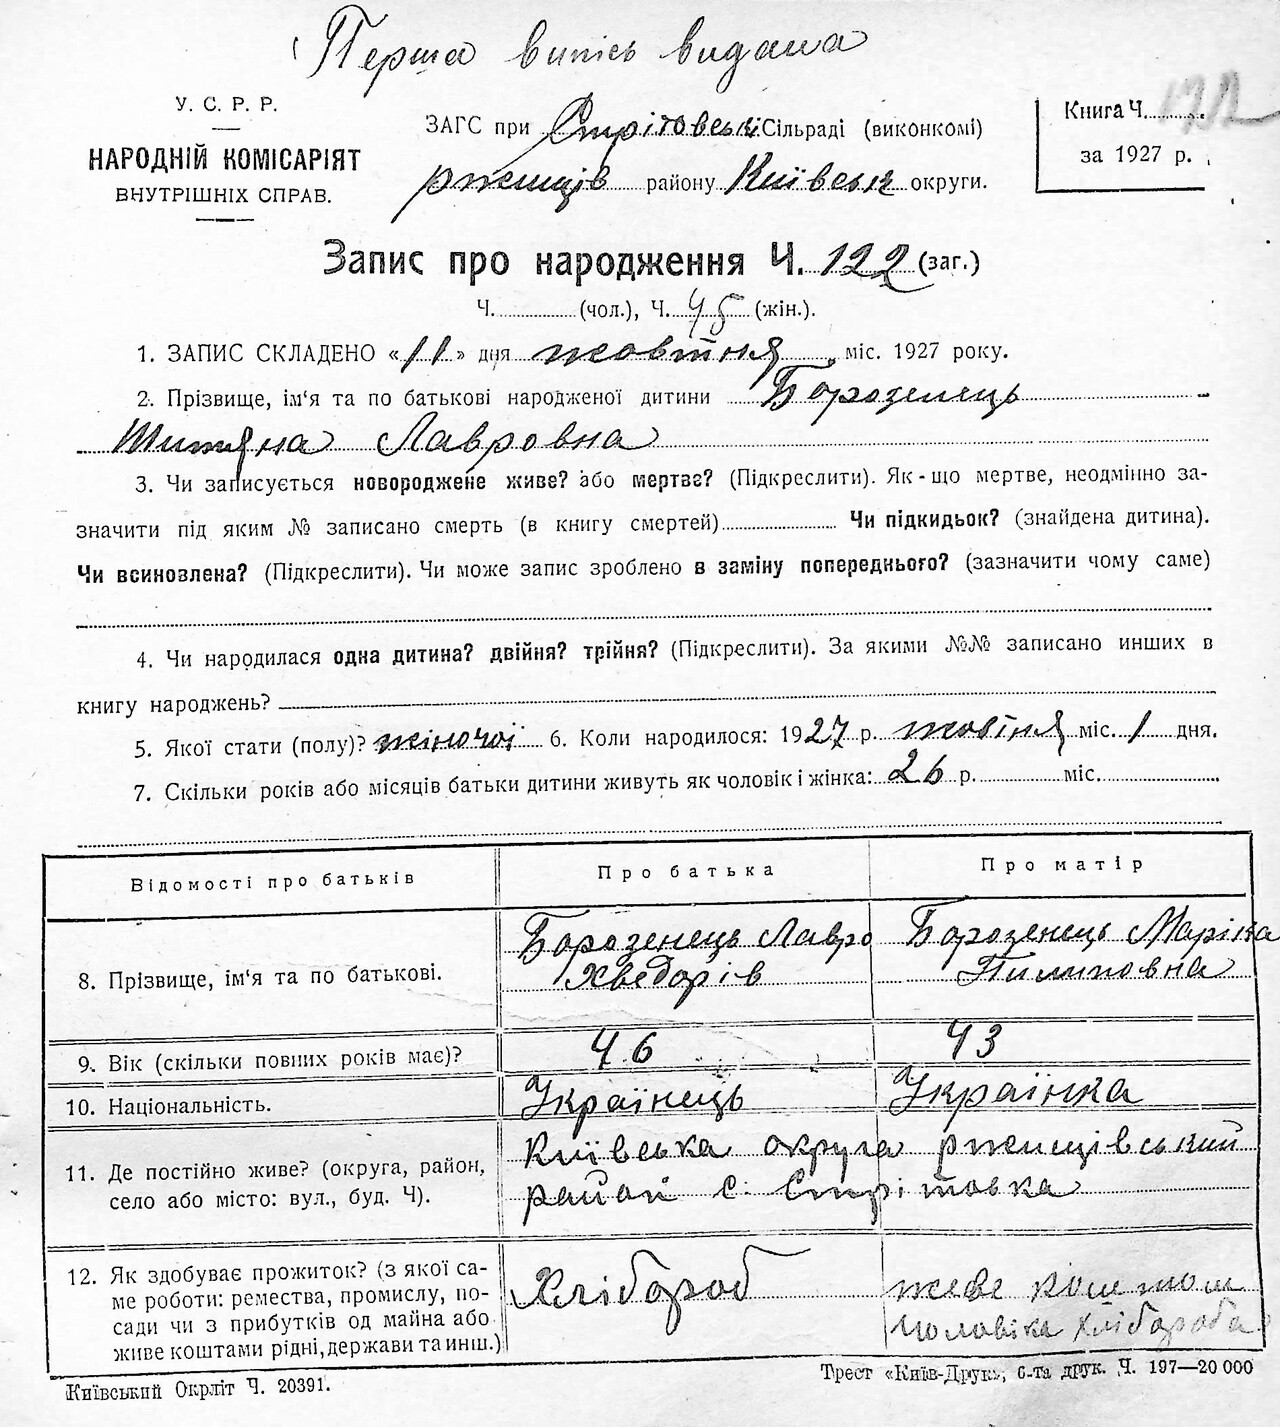 Перша випись видана
У. С. Р. Р.
НАРОДНІЙ КОМІСАРІЯТ
ВНУТРІШНІХ СПРАВ.
ЗАГС при Стрітовські Сільраді (виконкомі)
ржищів району Київськ округи.
Книга Ч. 122
за 1927 р.
Запис про народження Ч. 122 (заг.)
Ч. (чол.), Ч. 45 (жін.).
1. ЗАПИС СКЛАДЕНО «11» дня жовтня міс. 1927 року.
2. Прізвище, ім‘я та по батькові народженої дитини Борозенець
Титяна Лавровна
3. Чи записується новороджене живе? або мертве? (Підкреслити). Як-що мертве, неодмінно за-
значити під яким № записано смерть (в книгу смертей) Чи підкидьок? (знайдена дитина).
Чи всиновлена? (Підкреслити). Чи може запис зроблено в заміну попереднього? (зазначити чому саме)
4. Чи народилася одна дитина? двійня? трійня? (Підкреслити). За якими №№ записано инших в
книгу народжень?
5. Якої стати (полу)? жіночої 6. Коли народилося: 1927 р. жовтня міс. 1 дня.
7. Скільки років або місяців батьки дитини живуть як чоловік і жінка: 26 р. міс.
Відомості про батьків Про батька Про матір
8. Прізвище, ім‘я та по батькові. Борозенець Лавро Борозенець Маріна
Хведорів Пилиповна
9. Вік (скільки повних років має)? 46 43
10. Національність. Українець Українка
11. Де постійно живе? (округа, район, Київська округа ржищівський
село або місто: вул., буд. Ч). район с. Стрітовка
12. Як здобуває прожиток? (з якої са-
ме роботи: ремества, промислу, по-
сади чи з прибутків од майна або
живе коштами рідні, держави та инш.)
Хлібороб
живе коштом
чоловіка хлібороба
Київський Окрліт Ч. 20391.
Трест «Київ-Друк», 6-та друк. Ч. 197—20 000